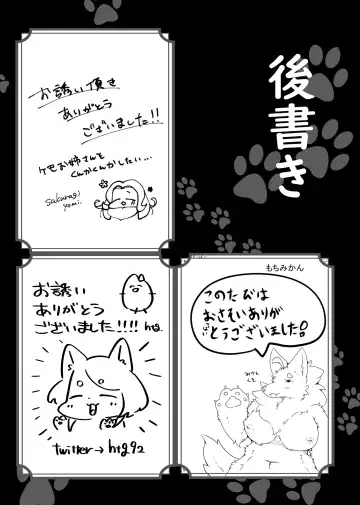 後書き
お誘い頂き
ありがとう
ございました!!
ケモお姉さんを
くんかくんかしたい…
sakuragi
yomi.
もちみかん
このたびは
おさそいありが
とうございました!
お誘い
ありがとう
ございました!!!!
twitter→htg92